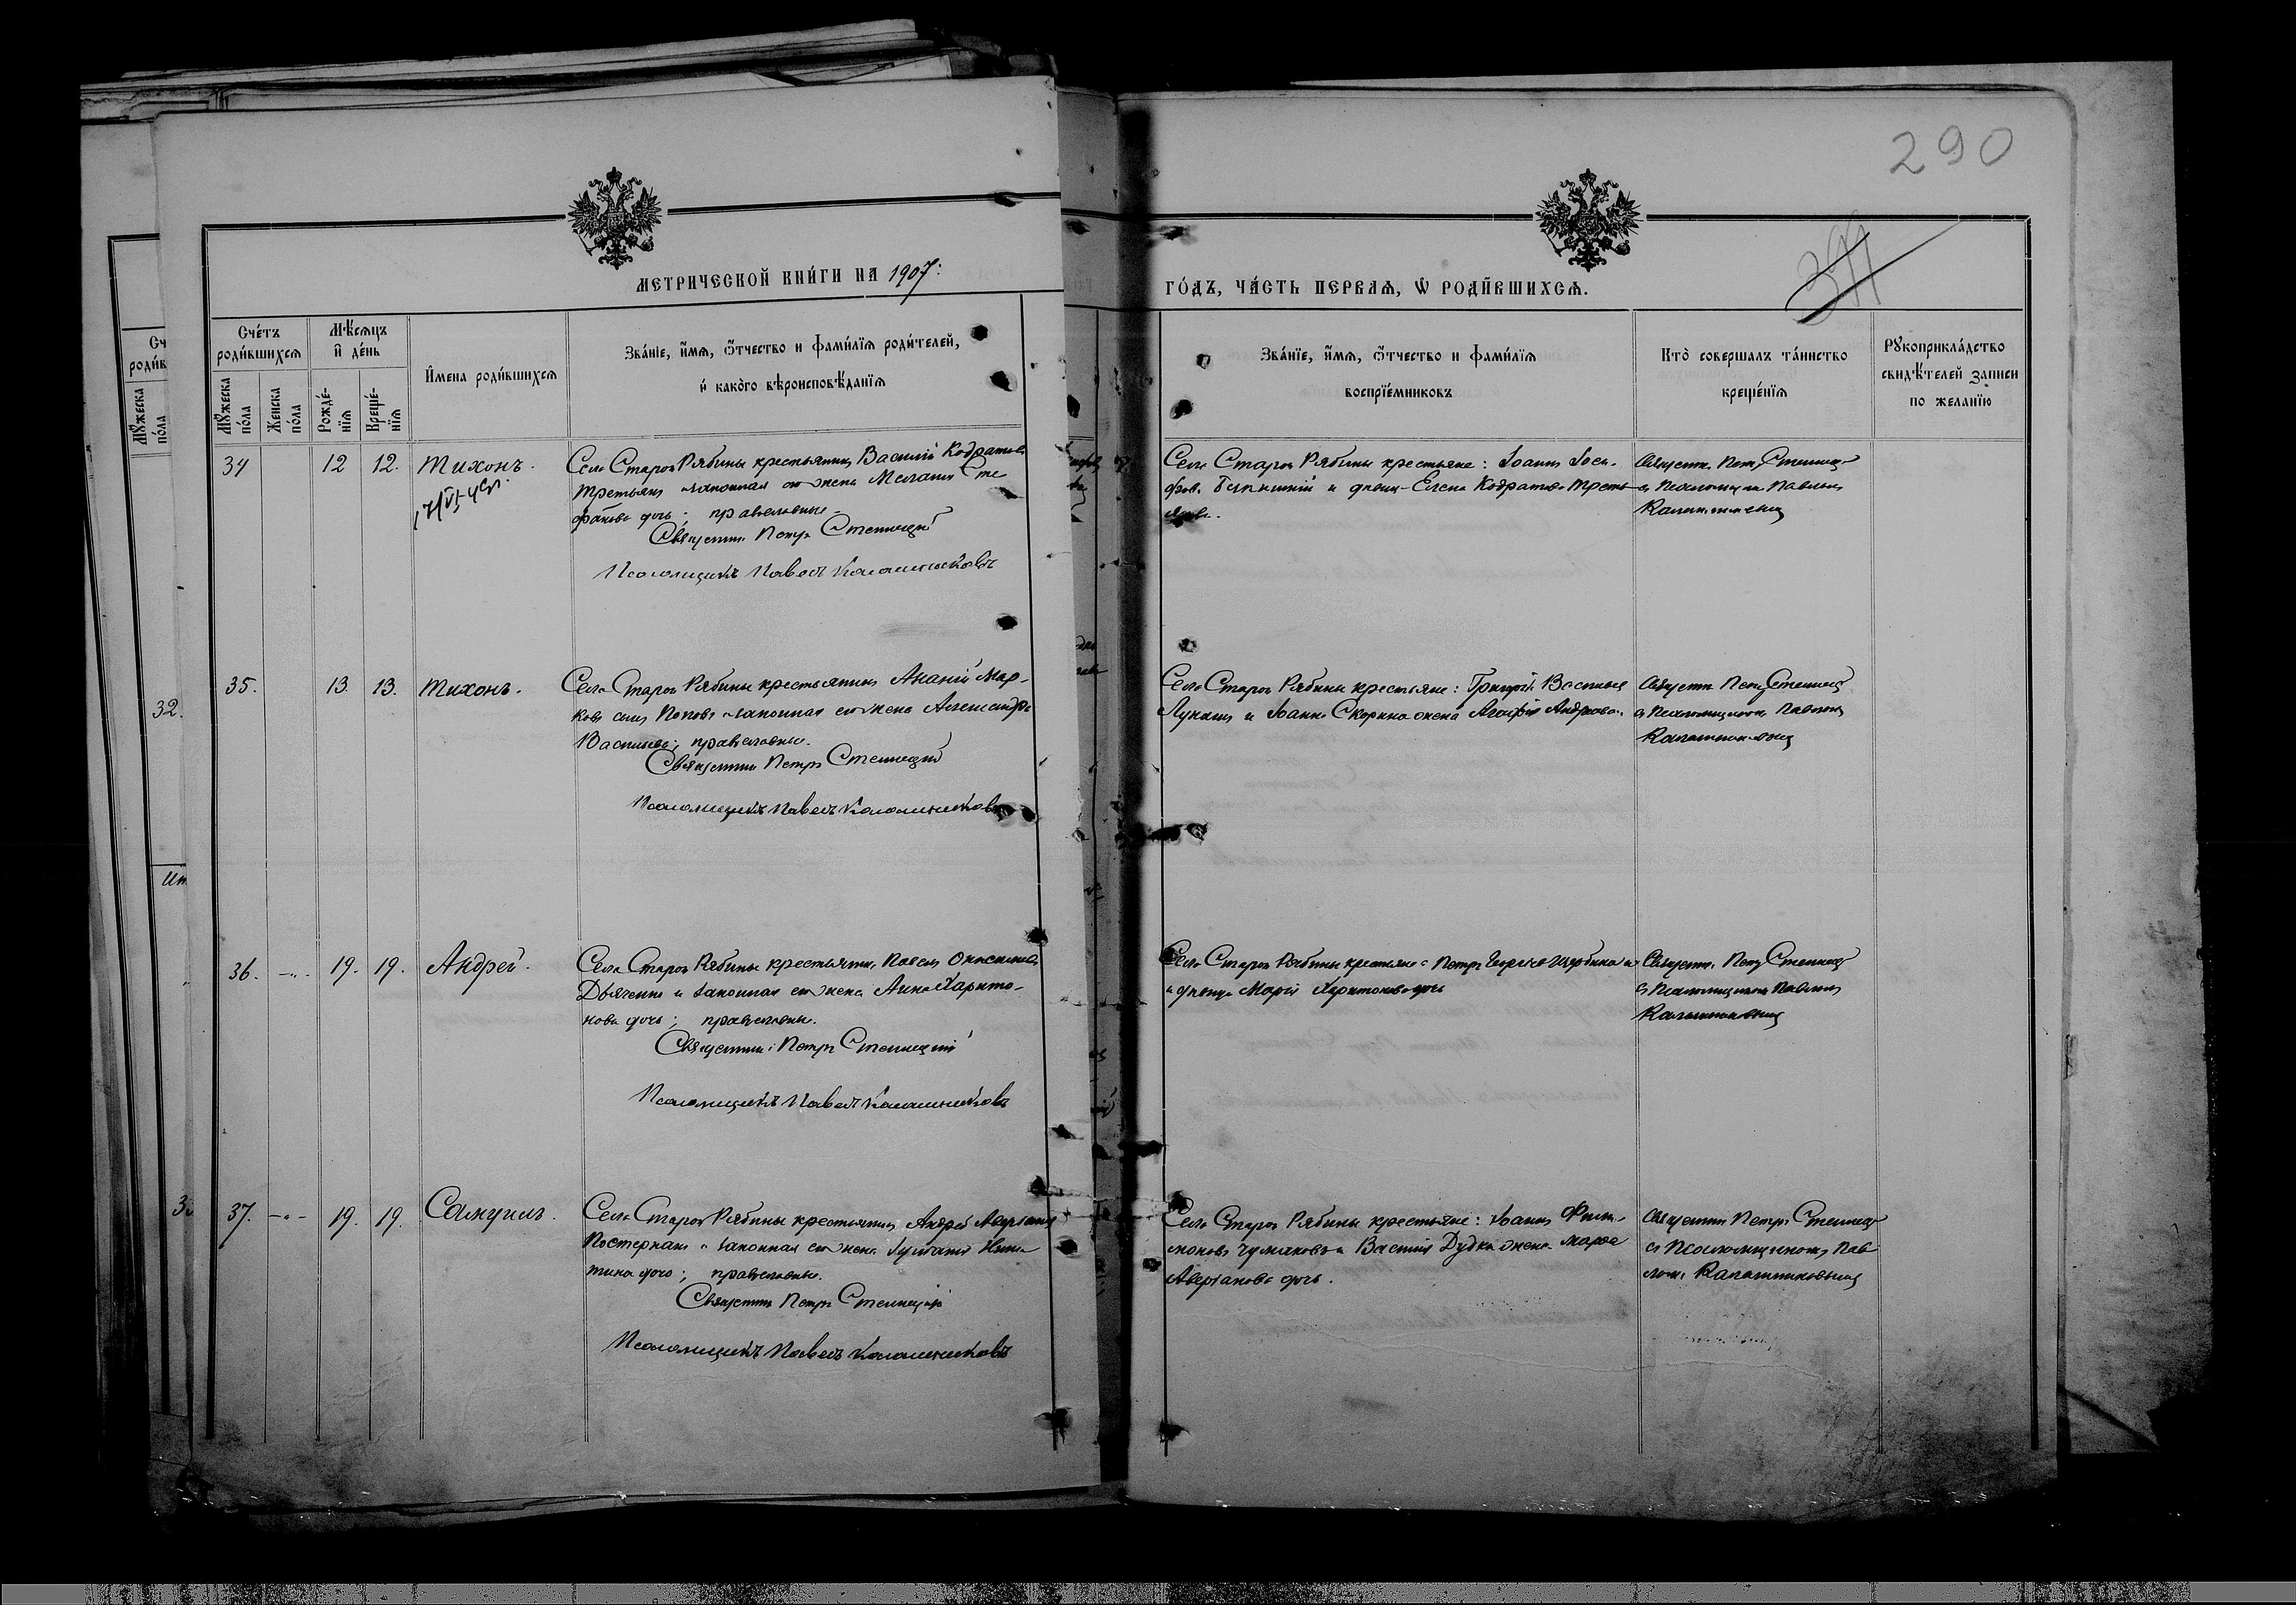 290
МЕТРИЧЕСКОЙ КНИ́ГИ НА 1907:
ГО́ДЪ, ЧА́СТЬ ПЕРВАѦ, Ѡ РОДИ́ВШИХСѦ.
Сче́тъ роди́вшихсѧ
Мѣ́сѧцъ и́ де́нь
И́мена роди́вшихсѧ
Зва́нїе, и́мѧ, ѻ́тчество и фами́лїѧ роди́телей,
и́ како́го вѣроисповѣ́данїѧ
Зва́нїе, и́мѧ, ѻ́тчество и фами́лїѧ
воспрїе́мниковъ
Кто̀ совершалъ та́инство
креще́нїѧ
Рꙋкоприкла́дство
свидѣ́телей записи
по желанїю
Мꙋ́жеска по́ла
Же́нска по́ла
Рожде́нїѧ
Креще́нїѧ
34 12 12. Тихонъ.
Села Старой Рябины крестьянинъ Василій Кодратовъ
Третьякъ и законная его жена Меланія Сте
фанова дочь; православные.
Священникъ Петръ Стеллецкій
Псаломщикъ Павелъ Калашниковъ
Села Старой Рябины крестьяне: Іоаннъ Іоси-
фовъ и девица Елена Кодратова Треть
якова.
Священн. Петръ Стеллецкій
съ Псаломщикомъ Павломъ
Калашниковымъ
35. 13. 13. Тихонъ.
Села Старой Рябины крестьянинъ Ананій Мар-
ковъ сынъ Поповъ и законная его жена Александра
Васильева; православные.
Священникъ Петръ Стеллецкій
Псаломщикъ Павелъ Калашниковъ
Села Старой Рябины крестьяне: Григорій Васильевъ
Лукашъ и Іоанна Скорика жена Агафія Андреева.
Священн. Петръ Стеллецкій
съ Псаломщикомъ Павломъ
Калашниковымъ
36. -"- 19. 19. Андрей.
Села Старой Рябины крестьянинъ Павелъ Онисимовъ
Дьяченко и законная его жена Анна Харито-
нова дочь; православные.
Священникъ Петръ Стеллецкій
Псаломщикъ Павелъ Калашниковъ
Села Старой Рябины крестьяне: Петръ Щербина
и девица Марія Харитонова дочь
Священн. Петръ Стеллецкій
съ Псаломщикомъ Павломъ
Калашниковымъ
37. -"- 19. 19. Самуилъ.
Села Старой Рябины крестьянинъ Андрей Аверіановъ
Постернакъ и законная его жена Іуліанія Ники
тина дочь; православные.
Священникъ Петръ Стеллецкій
Псаломщикъ Павелъ Калашниковъ
Села Старой Рябины крестьяне: Іоаннъ Фили-
моновъ Чумаковъ и Василія Дудки жена Марѳа
Аверіанова дочь.
Священникъ Петръ Стеллецкій
съ Псаломщикомъ Пав
ломъ Калашниковымъ
32.